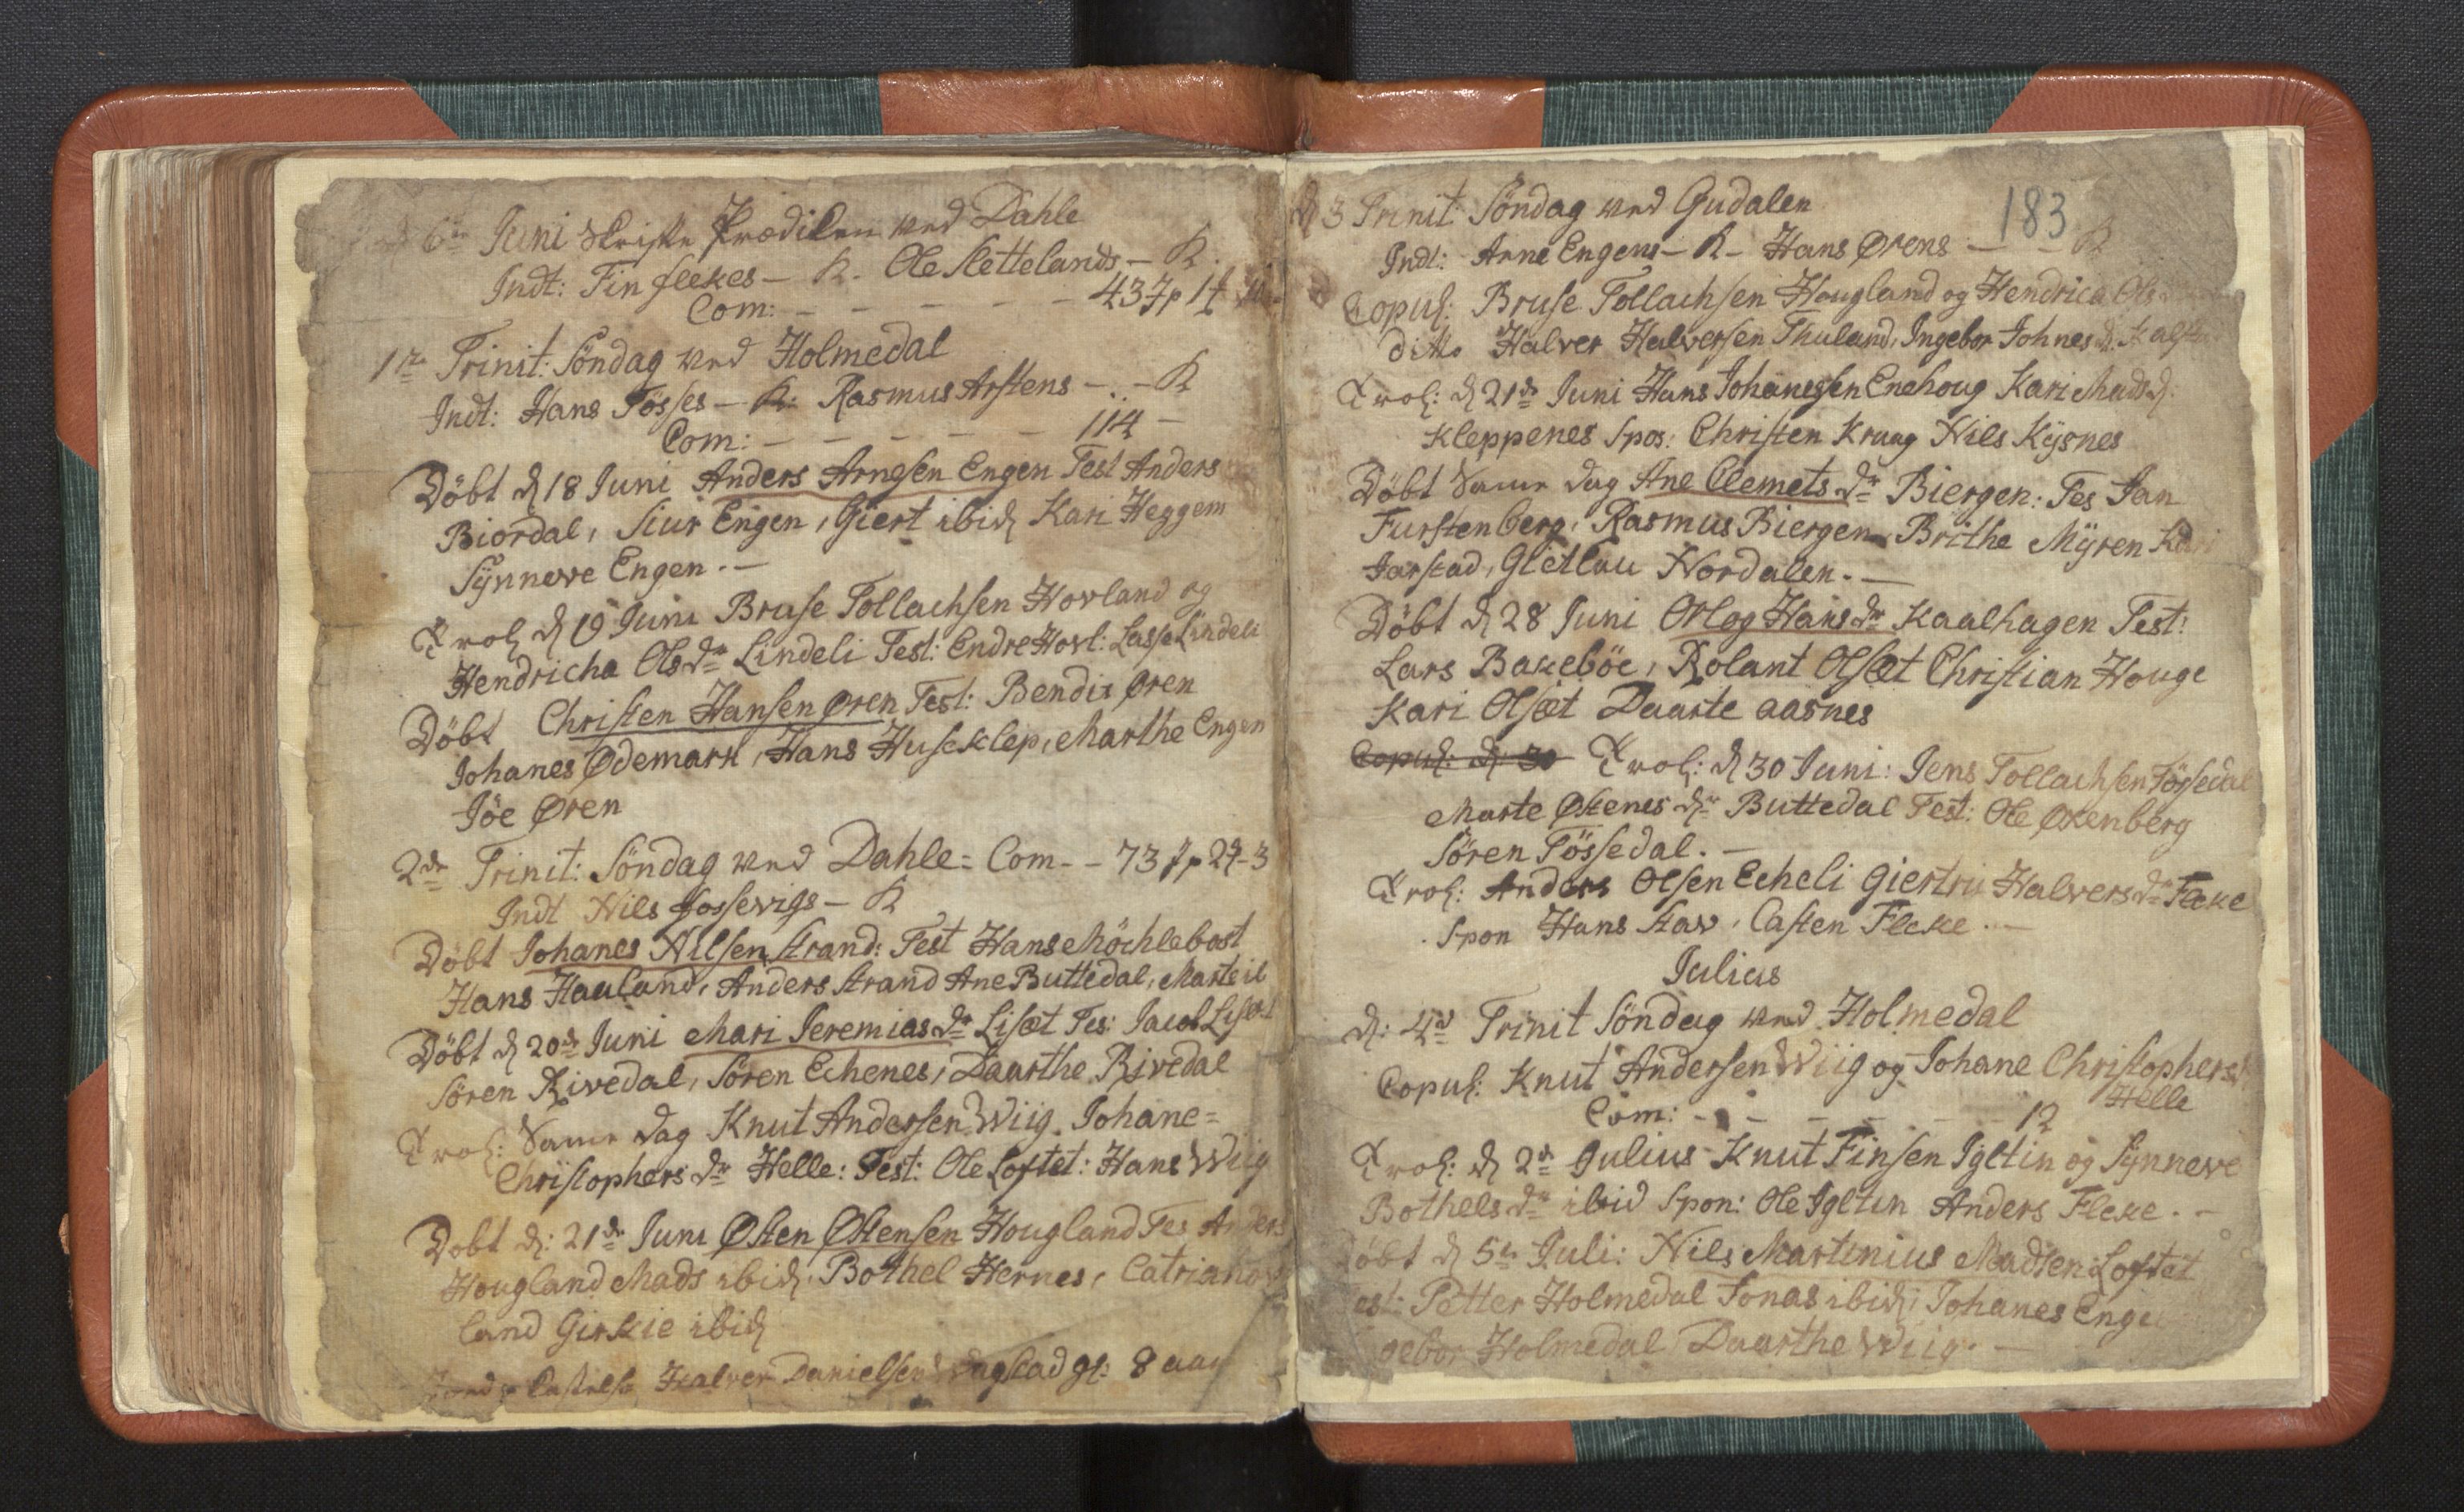 6te Juni Skrifte Prædiken ved Dahle
Indt: Fin flekes - K. Ole Slettelands - K.
Com: - - - - - 43
1te Trinit: Söndag ved Holmedal
Indt: Hans Fösses - K: Rasmus Arstens - . - K
Com: - - - - - 114 -
Döbt d 18 Juni Anders Arnesen Engen Test Anders
Biordal, Siur Engen, Giert ibid Kari Heggem
Synneve Engen. -
Trol: d 19 Juni Bruse Tollachsen Hovland og
Hendricha Olsdr Lindeli Test: Endre Hovl: Lasse Lindeli
Döbt Christen Hansen Øren Test: Bendix Øren
Johanes Ødemark, Hans Huseklep, Marthe Engen
Jöe Øren
2de Trinit: Söndag ved Dahle = Com - - 73
Indt Nils fossevigs - K
Döbt Johanes Nilsen Strand: Test Hans Möchlebost
Hans Haaland, Anders Strand Ane Buttedal, Marte ib
Döbt d 20de Juni Mari Jeremiasdr Lisæt Tes: Jacob Lisæt
Sören Rivedal, Sören Echenes, Daarthe Rivedal
Trol: Same dag Knut Andersen Wiig. Johane =
Christophersdr Helle: Test: Ole Loftet: Hans Wiig
Dobt d: 21de Juni Østen Østensen Hougland Tes Anders
Hougland Mads ibid, Bothel Hernes, Catri
land Girskie ibid
Halver Danielsen Vagstad gl: 8 aar
183
d 3 Trinit: Söndag ved Gudalen
Indt: Arne Engens - K - Hans Ørens - - K
Copul: Bruse Tollachsen Hougland og Hendrica Ols
ditto Halver Halversen Thuland, Ingebor Johnesd.
Trol: d 21de Juni Hans Johanessen Enehoug Kari Madsd.
Kleppenes Spos: Christen Kraag Nils Kysnes
Döbt Same dag Ane Clemetsdr Biergen: Tes Jan
Furstenberg, Rasmus Biergen, Brithe Myren Kari
Jarstad, Gietlau Nordalen. -
Döbt d 28 Juni Orlog Hansdr Kaalhagen Test:
Lars Bakeböe, Rolant Olsæt Christian Houge
Kari Olsæt Daarte aasnes
Copul: d: 30 Trol: d 30 Juni: Jens Tollachsen Fössedal
Marte Østenesdr Buttedal Test: Ole Oxenberg
Sören Fössedal. -
Trol: Anders Olsen Echeli Giertru Halversdr Fleke
Spon Hans Stav, Casten Fleke. -
Julius
d: 4de Trinit Söndag ved Holmedal
Copul: Knut Andersen Wiig og Johane Christophersd
Helle
Com: - - - - - 12
Trol: d 2de Julius Knut Finsen Igltin og Synneve
Bothelsdr ibid Spon: Ole Igltin Anders Fleke. -
öbt d 5te Juli: Nils Martinius Madsen Loftet
est: Petter Holmedal Jonas ibid, Johanes Enge
gebor Holmedal Daarthe Wiig. -